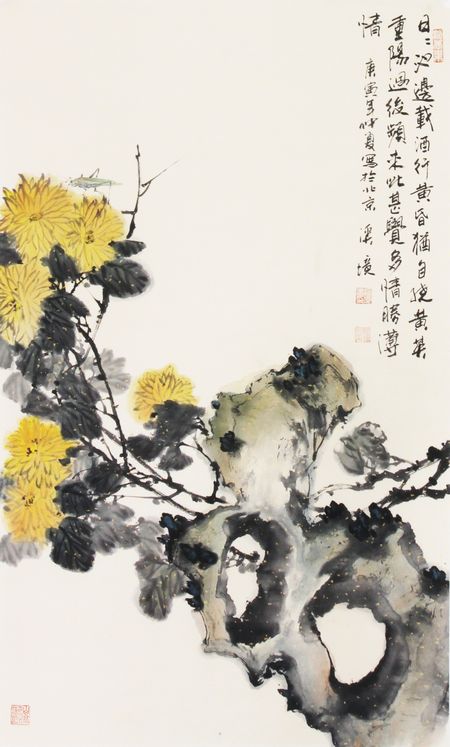 日〻池邊載酒行黃昏猶自繞黃英
重陽過後頻來此甚覺多情勝薄
情 庚寅年仲夏寫於北京